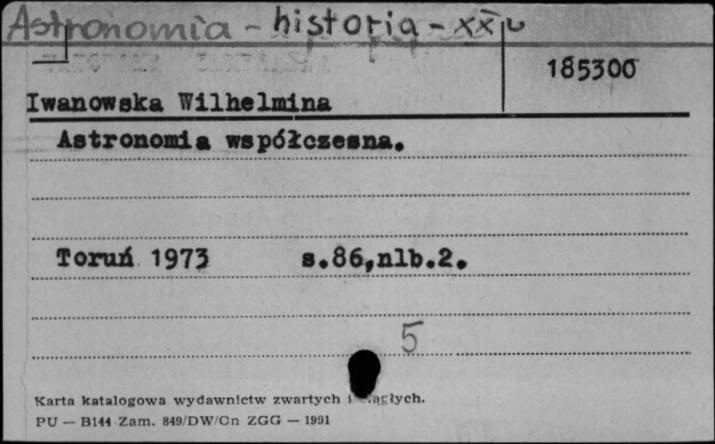 Astronomia - historia - XX w
185300
Iwanowska Wilhelmina
Astronomia współczesna.
Toruń 1973 s.86,nlb.2.
5
Karta katalogowa wydawnictw zwartych i
PU — B144 Zam. 849/DW/Cn ZGG — 1991